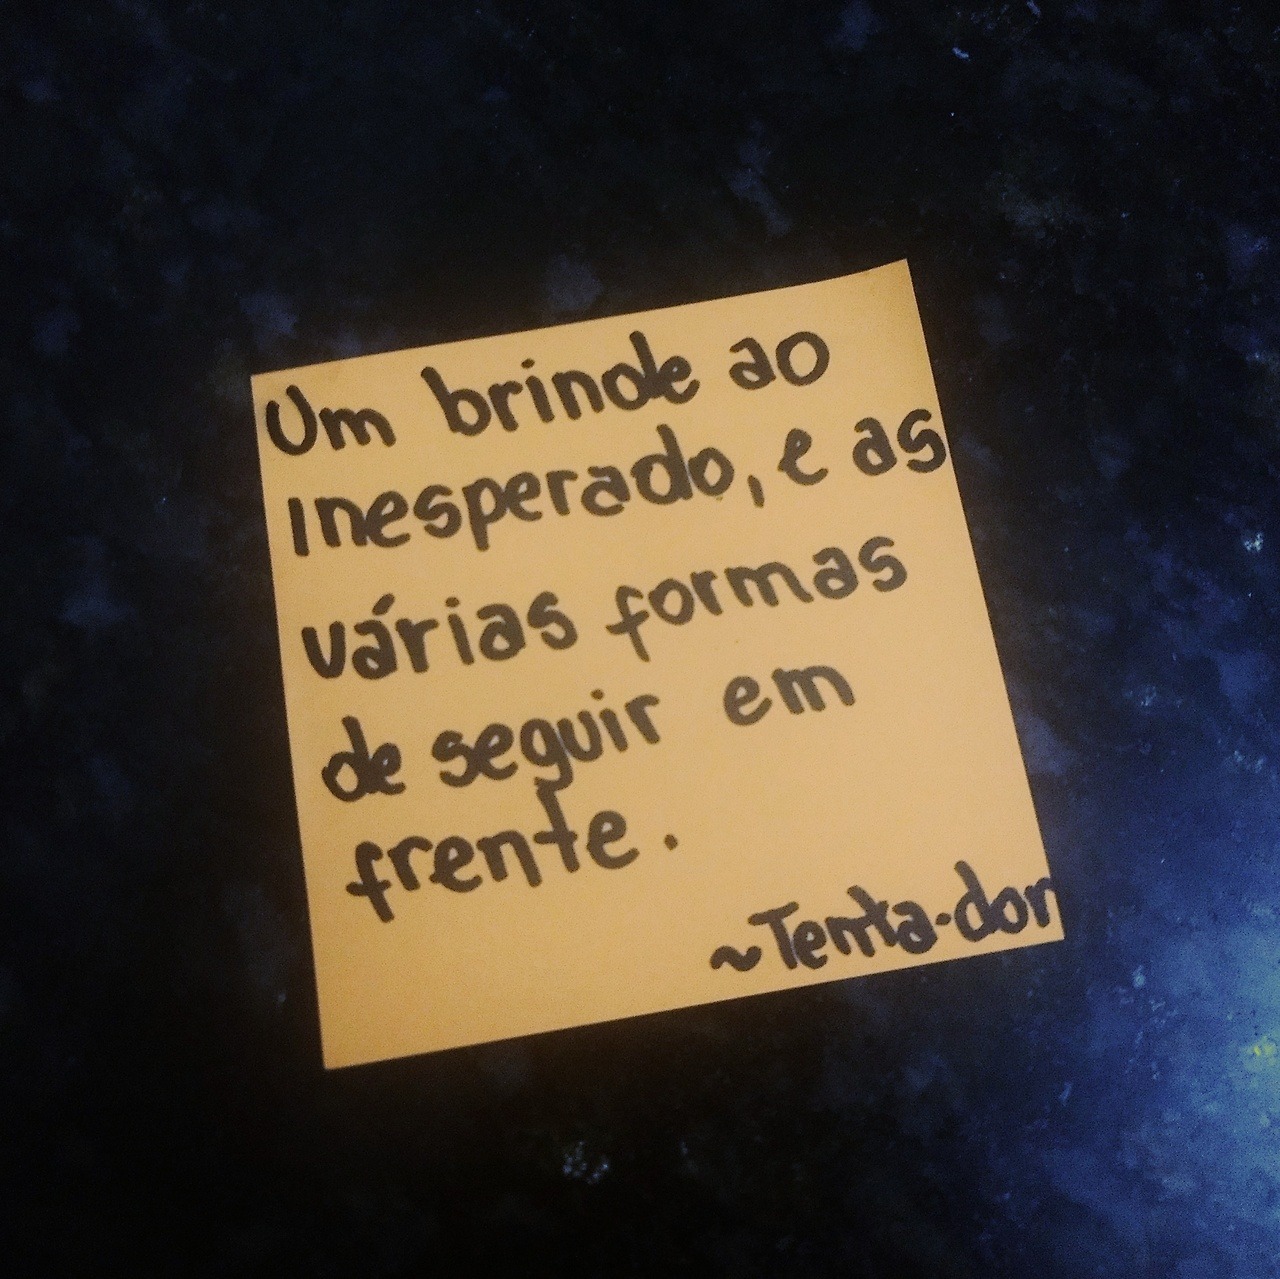 Um brinde ao
inesperado, e as
várias formas
de seguir em
frente.
~Tenta-dor